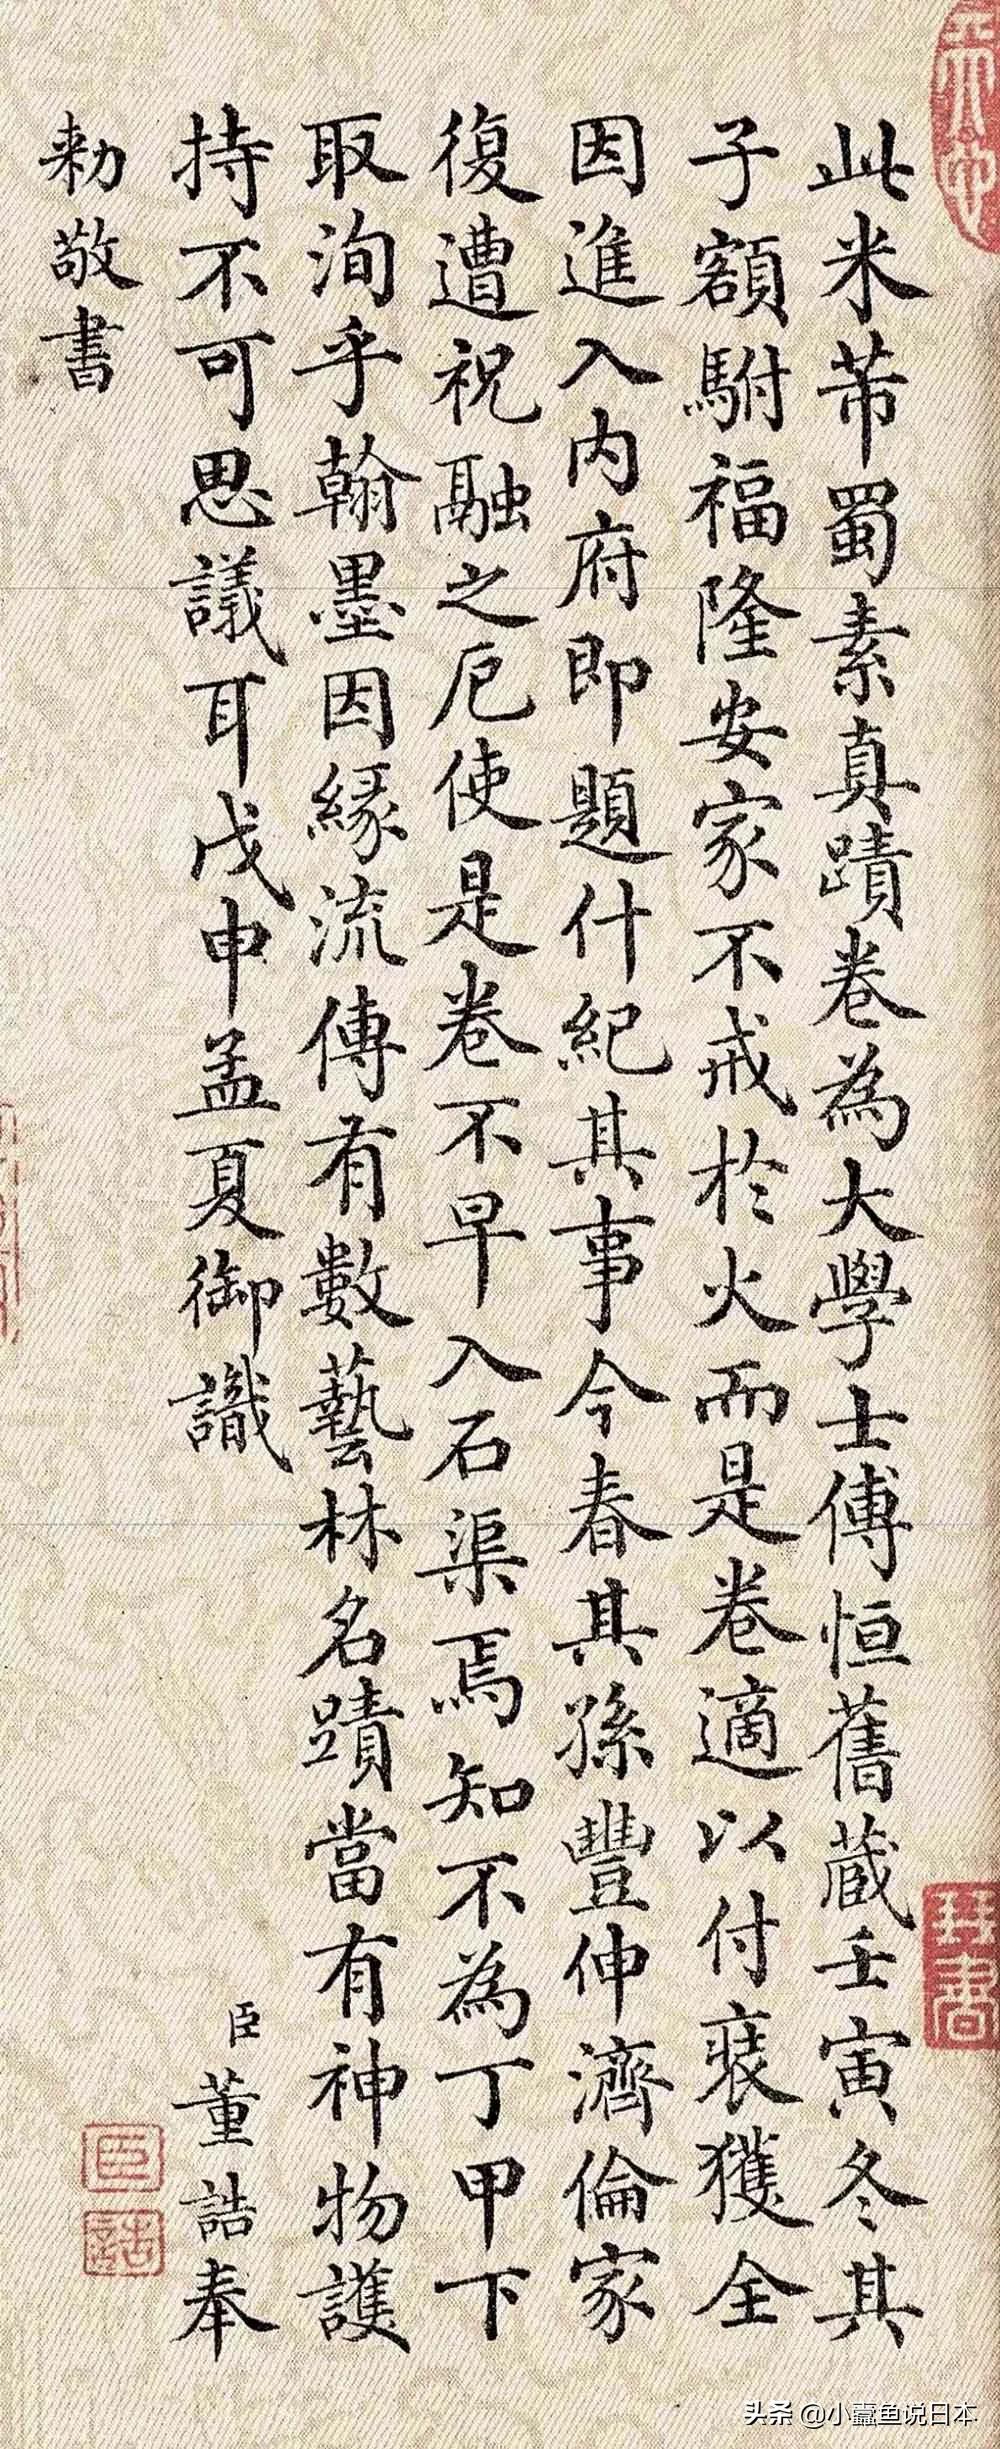 此米芾蜀素真蹟卷為大學士傅恒舊蔵壬寅冬其
子額駙福隆安家不戒於火而是卷適以付裝獲全
因進入内府即題什紀其事今春其孫豐伸濟倫家
復遭祝融之厄使是卷不早入石渠焉知不為丁甲下
取洵乎翰墨因緣流傳有數藝林名蹟當有神物護
持不可思議耳戊申孟夏御識
臣董誥奉
勑敬書
臣
誥
琴書
头条 @小蠹鱼说日本